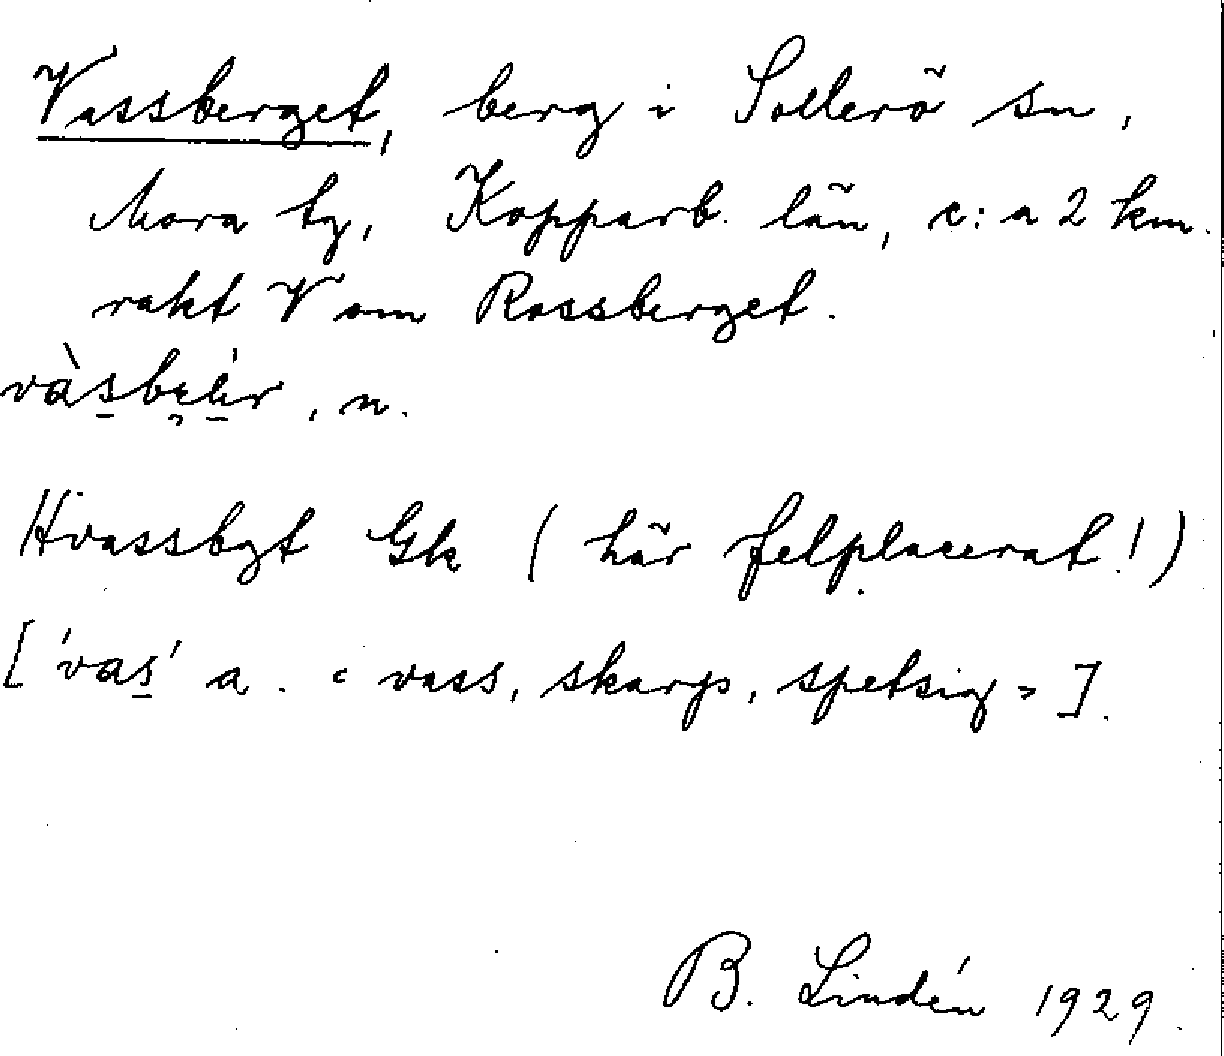 Vassberget, berg i Sollerö sn,
Mora tg, Kopparb. län, c:a 2 km.
rakt V om Rossberget.
, n.
Hvassbgt Gk (här felplacerat!)
['vas' a. = vass, skarp, spetsig =].
B. Lindén 1929.